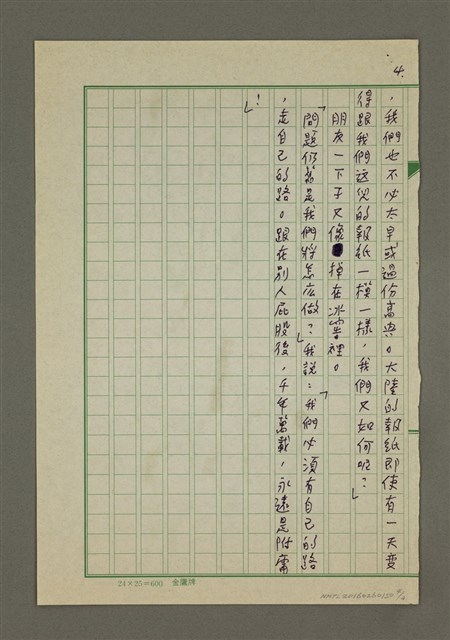 4.
，我們也不必太早或過份高興。大陸的報紙即使有一天變
得跟我們這兒的報紙一模一樣，我們又如何呢？」
朋友一下子又像掉在冰窖裡。
「問題仍舊是我們將怎広做？」我說：「我們必須有自己的路
，走自己的路。跟在別人屁股後，千年萬載，永遠是附庸
！」
24×25=600 金鷹牌